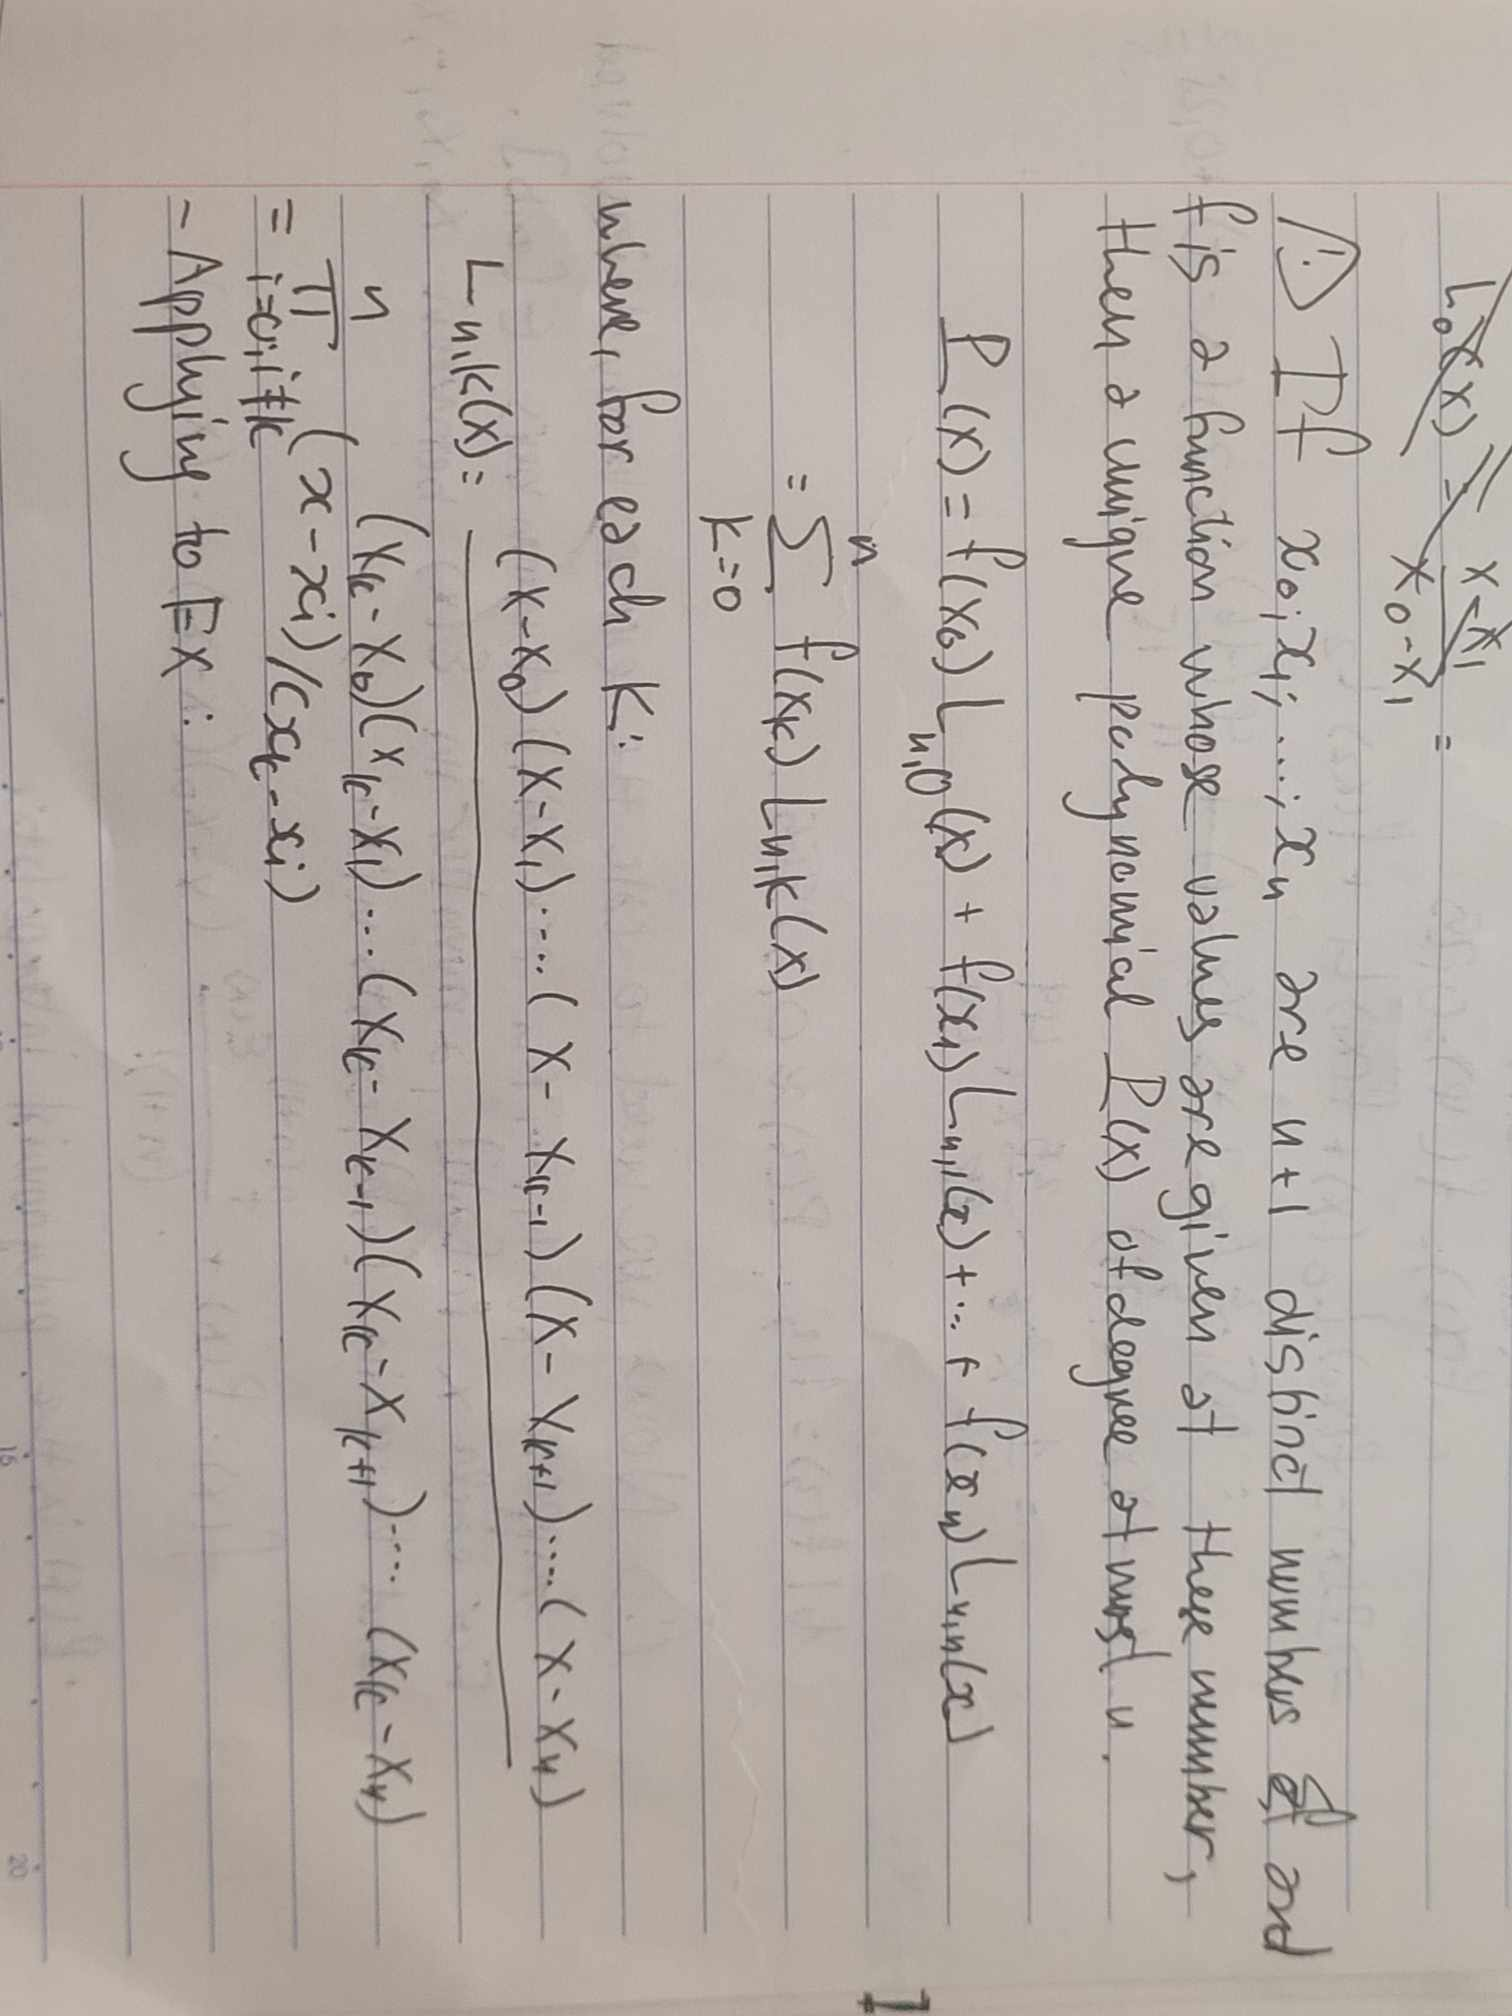 L₀(x) = x - x₁ / x₀ - x₁ =
If x₀; x₁; ...; xₙ are n+1 distinct numbers and
f is a function whose values are given at these number,
then a unique polynomial P(x) of degree at most n.
P(x) = f(x₀) Lₙ,₀(x) + f(x₁) Lₙ,₁(x) + ... + f(xₙ) Lₙ,ₙ(x)
= n ∑ k=0 f(xₖ) Lₙ,ₖ(x)
where, for each K:
Lₙ,ₖ(x) = (x-x₀)(x-x₁)....(x-xₖ₋₁)(x-xₖ₊₁)....(x-xₙ)
(xₖ-x₀)(xₖ-x₁)...(xₖ-xₖ₋₁)(xₖ-xₖ₊₁)....(xₖ-xₙ)
= n ∏ i=0; i≠k (x-xᵢ)/(xₖ-xᵢ)
- Applying to Ex:
15
20